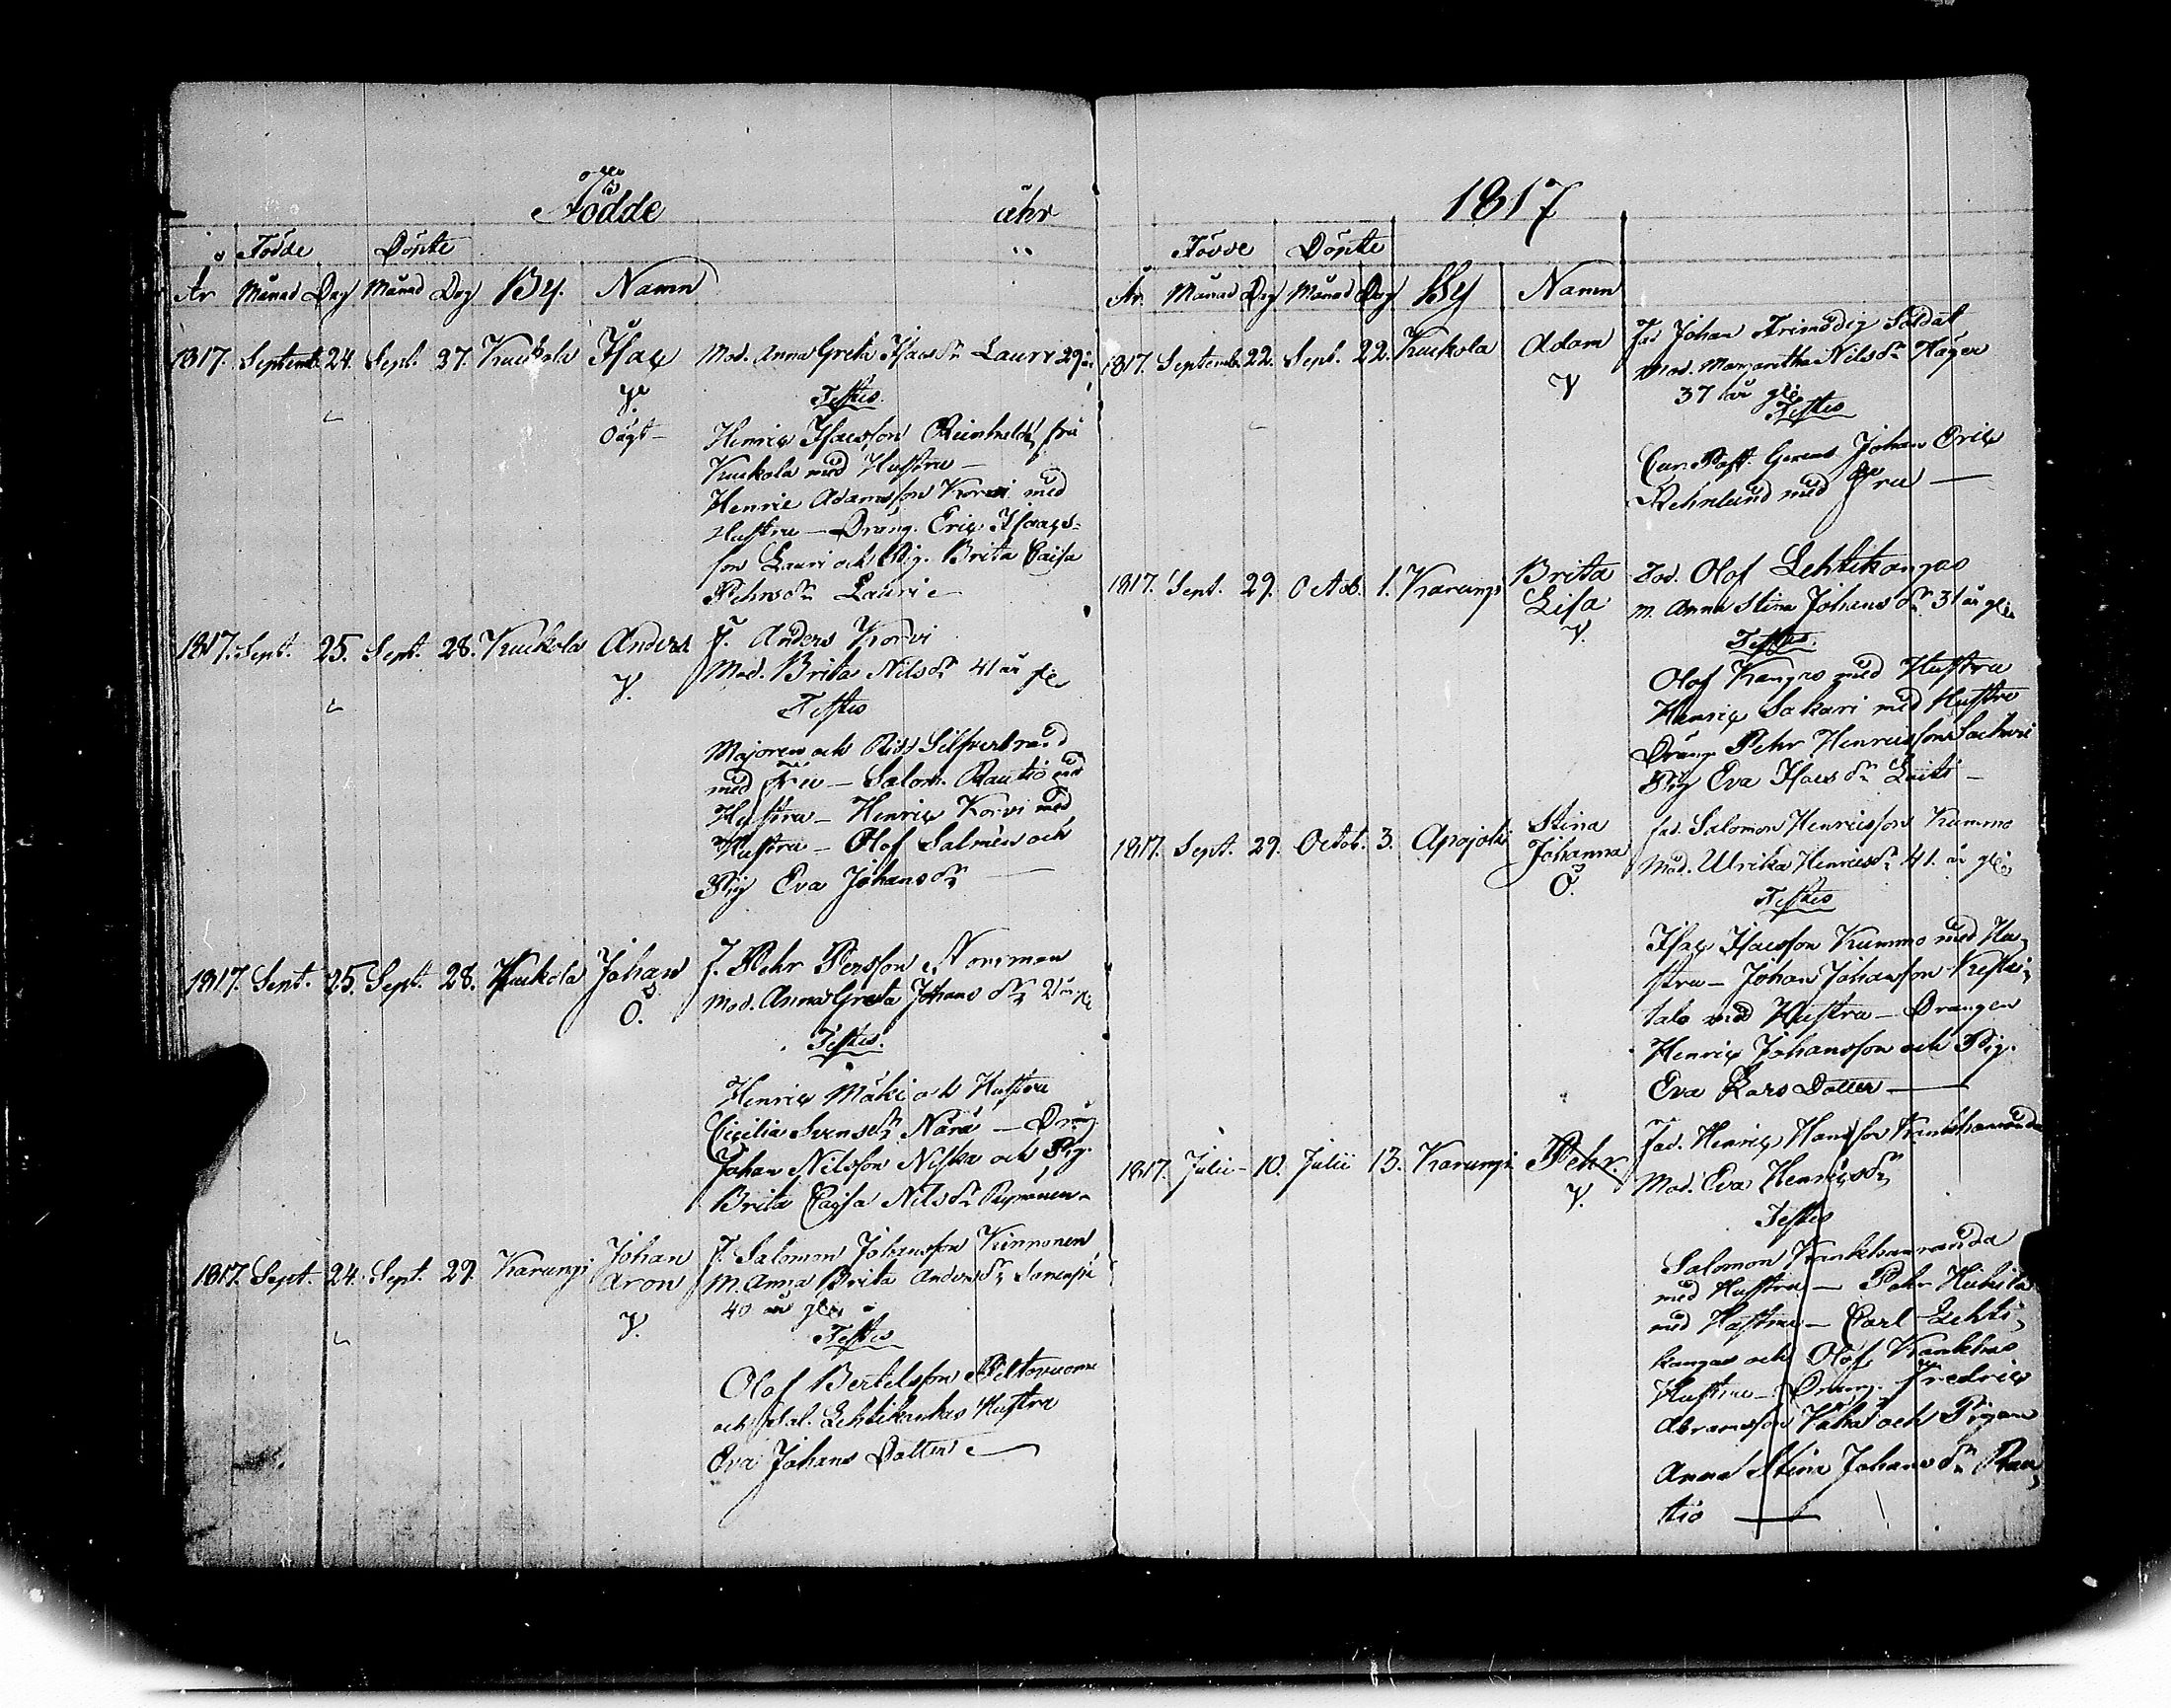 Födde åhr
Födde Döpte
År Månad Dag Månad Dag By. Namn
1817. Septemb. 24. Sept. 27. Kuckola Isac Mod. Anna Greta Isacsdr Lauri 29 år
V. Testes.
Oägt- Henric Isacsson Reinheldt frå
Kuckola med Hustru —
Henric Adamsson Korvi med
Hustru — Dräng. Eric Isacs-
son Lauri och Pig. Brita Caisa
Pehrsdr Lauri
1817. Sept. 25. Sept. 28. Kuckola Anders F. Anders Korvi
V. Mod. Brita Nilsdr 41 år gl.
Testes
Majoren och Ridd Silfverbrand
med Fru — Salom. Rautio med
Hustru — Henric Korvi med
Hustru — Olof Salmén och
Pig Eva Johansdr —
1817. Sept. 25. Sept. 28. Kuckola Johan F. Pehr Persson Norimen
O. Mod. Anna Greta Johansdr 21 år gl.
Testes.
Henric Mäki och Hustru
Cicilia Svensdr Närä — Dräng
Johan Nilsson Niska och Pig.
Brita Cajsa Nilsdr
1817. Sept. 24. Sept. 29. Karungi Johan F. Salomon Johansson Kinnonen
Aron M. Anna Brita Andersdr
V. 40 år gl.
Testes
Olof Bertelsson Peltovuoma
och Sal. Lehtikankas Hustru
Eva Johans Dotter —
1817
Födde Döpte
År. Månad Dag Månad Dag By Namn
1817. Septemb. 22. Sept. 22. Kuckola Adam Fad Johan Frimodig Soldat
V Mod. Margaretha Nilsdr Häger
37 år gl.
Testes
Cur. Past. Gerens Johan Eric
Rehnlund med Fru —
1817. Sept. 29. Octob. 1. Karungi Brita Fad. Olof Lehtikangas
Lisa M. Anna Stina Johansdr 31 år gl.
V. Testes.
Olof Kangas med Hustru
Henric Sakari med Hustru
Dräng Pehr Henricsson
Pig Eva Isacsdr Laiti —
1817. Sept. 29. Octob. 3. Apajoki Stina Fad. Salomon Henricsson Kummo
Johanna Mod. Ulrika Henricsdr 41. år gl.
O. Testes
Isac Isacsson Kummo med Hu-
stru — Johan Johansson Keski-
talo med Hustru — Drängen
Henric Johansson och Pig.
Eva Lars Dotter —
1817. Julii - 10. Julii 13. Karungi Pehr. Fad. Henric Hansson Krankhamranda
V. Mod. Eva Henricsdr
Testes
Salomon Krankhamranda
med Hustru — Pehr Hukila
med Hustru — Carl Lehti-
kangas och Olof Krankkas
Hustru — Dräng. Fredric
Abramsson Vähä och Pigan
Anna Stina Johansdr Rau-
tio —